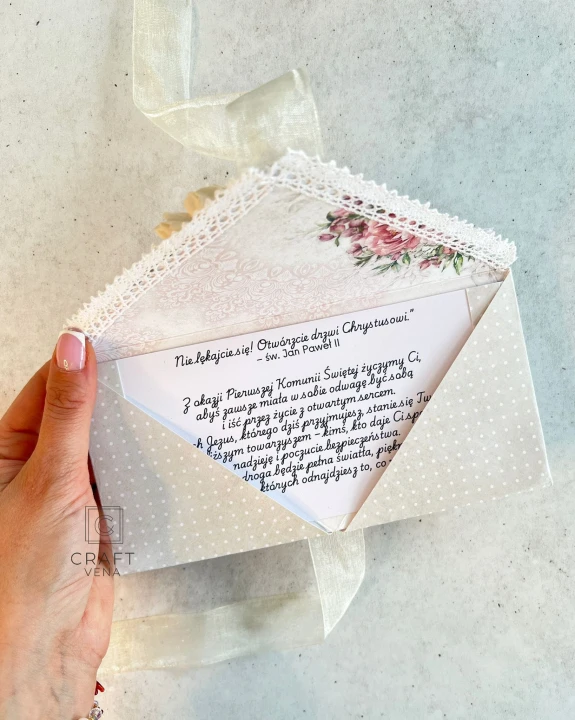 Nie lękajcie się! Otwórzcie drzwi Chrystusowi."
– św. Jan Paweł II
Z okazji Pierwszej Komunii Świętej życzymy Ci,
abyś zawsze miała w sobie odwagę być sobą
i iść przez życie z otwartym sercem.
Jezus, którego dziś przyjmujesz, stanie się
towarzyszem – kimś, kto daje Ci
nadzieję i poczucie bezpieczeństwa.
droga będzie pełna światła,
których odnajdziesz to, co
CRAFT
VENA